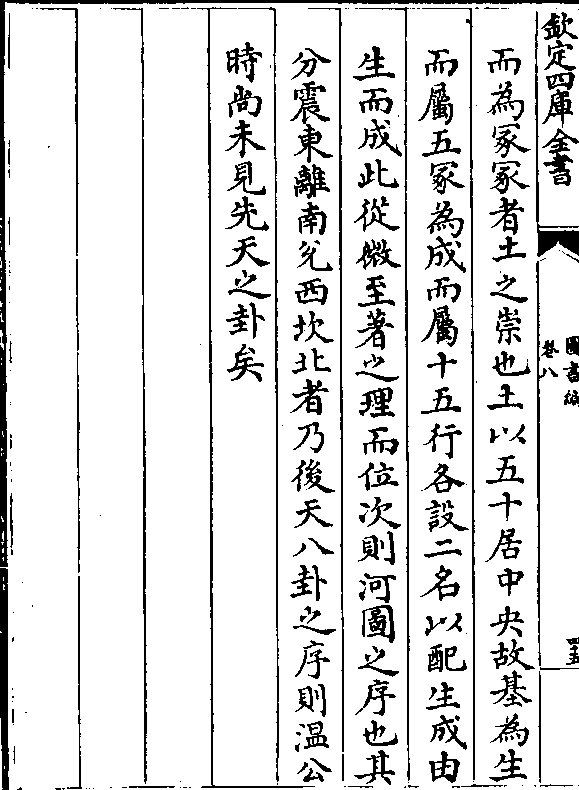 欽定四庫全書
圖書編
卷八
四五
而為冡冡者土之崇也土以五十居中央故基為生
而屬五冡為成而屬十五行各設二名以配生成由
生而成此從微至著之理而位次則河圖之序也其
分震東離南兌西坎北者乃後天八卦之序則温公
時尚未見先天之卦矣